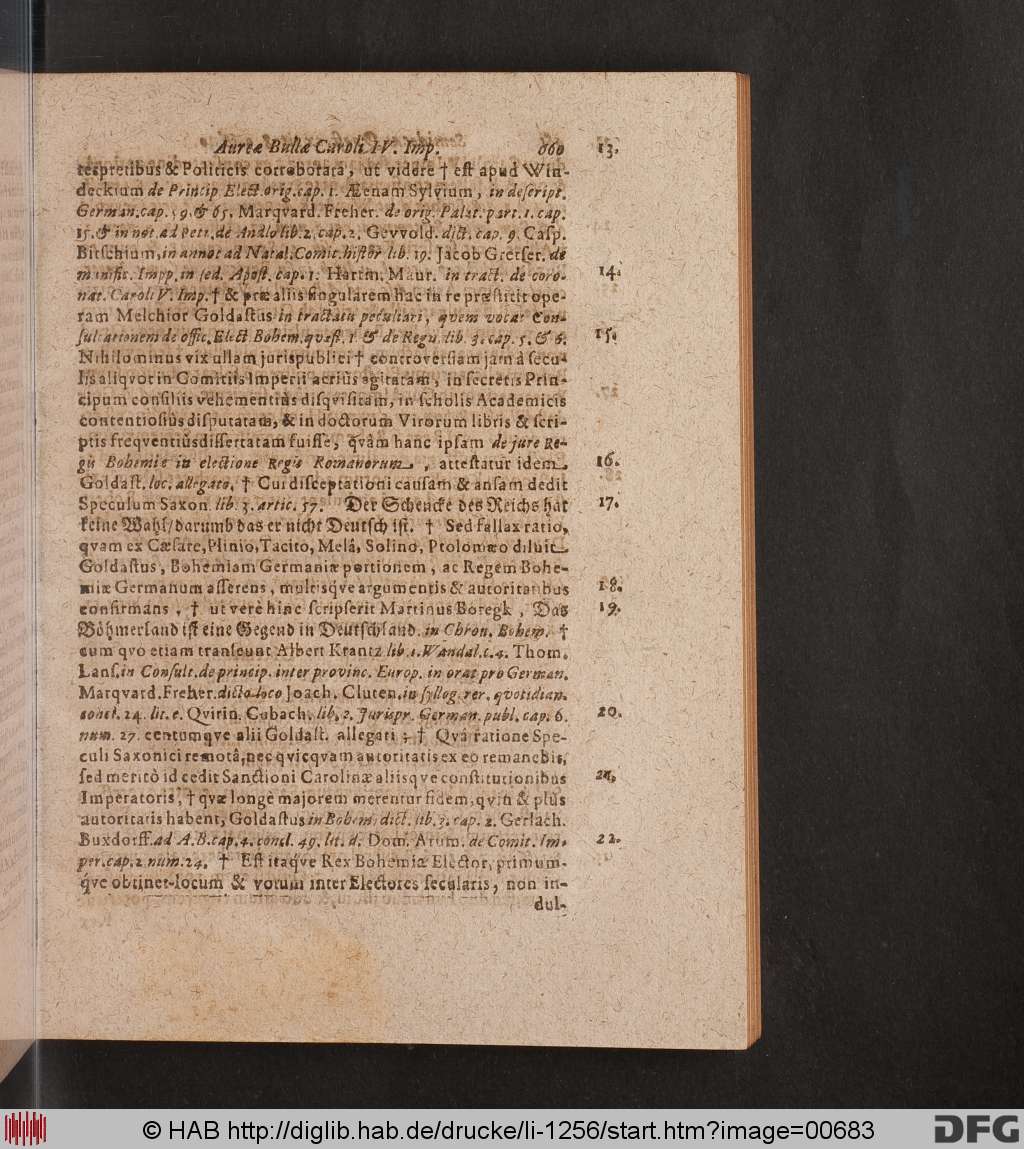 Aureæ Bullæ Caroli IV. Imp. 660
terpretibus & Politicis corroborata, ut videre † est apud Win- 13.
deckium de Princip. Elect. orig. cap. 1. Æenam Sylvium, in descript.
German. cap. 59. & 65. Marqvard. Freher. de orig. Palat. part. 1. cap.
15. & in not. ad Petr. de Andlo lib. 2. cap. 2. Gevvold. dict. cap. 9. Casp.
Bitschium, in annot ad Natal. Comit. histor lib. 19. Jacob Gretser. de
munific. Impp. in sed. Apost. cap. 1. Hartm. Maur. in tract. de coro-
nat. Caroli V. Imp. † & præ aliis singularem hac in re præstitit ope- 14.
ram Melchior Goldastus in tractatu peculiari, qvem vocat Con-
sultationem de offic. Elect Bohem. quæst. 1 & de Regn. lib. 3. cap. 5. & 6.
Nihilominus vix ullam juris publici † controversiam jam à secu- 15.
lis aliqvot in Comitiis Imperii acriùs agitatam, in secretis Prin-
cipum consiliis vehementiùs disqvisitam, in scholis Academicis
contentiosiùs disputatam, & in doctorum Virorum libris & scri-
ptis freqventiùs dissertatam fuisse, qvàm hanc ipsam de jure Re-
gis Bohemiæ in electione Regis Romanorum, attestatur idem
Goldast. loc. allegato. † Cui disceptationi causam & ansam dedit 16.
Speculum Saxon. lib. 3. artic. 57. Der Schencke des Reichs hat
keine Wahl/ darumb das er nicht Deutsch ist. † Sed fallax ratio, 17.
qvam ex Cæsare, Plinio, Tacito, Melâ, Solino, Ptolomæo diluit
Goldastus, Bohemiam Germaniæ portionem, ac Regem Bohe-
miæ Germanum asserens, multisqve argumentis & autoritatibus
confirmans, † ut verè hinc scripserit Martinus Boregk, Das 18.
Böhmerland ist eine Gegend in Deutschland. in Chron. Bohem. † 19.
cum qvo etiam transeunt Albert Krantz lib. 1. Wandal. c. 4. Thom.
Lans. in Consult. de princip. inter provinc. Europ. in orat pro German.
Marqvard. Freher. dicto loco Joach. Cluten. in syllog. rer. quotidian.
concl. 24. lit. e. Qvirin. Cubach. lib. 2. Jurispr. German. publ. cap. 6.
num. 27. centumqve alii Goldast. allegati; † Qvâ ratione Spe- 20.
culi Saxonici remotâ, nec qvicqvam autoritatis ex eo remanebit,
sed meritò id cedit Sanctioni Carolinæ aliisqve constitutionibus
Imperatoris, † qvæ longè majorem merentur fidem, qvin & plus 21.
autoritatis habent, Goldastus in Bohem. dict. lib. 3. cap. 2. Gerlach.
Buxdorff. ad A. B. cap. 4. concl. 49. lit. d. Dom. Arum. de Comit. Im-
per. cap. 2 num. 24. † Est itaqve Rex Bohemiæ Elector, primum- 22.
qve obtinet locum & votum inter Electores seculares, non in-
dul-
© HAB http://diglib.hab.de/drucke/li-1256/start.htm?image=00683
DFG